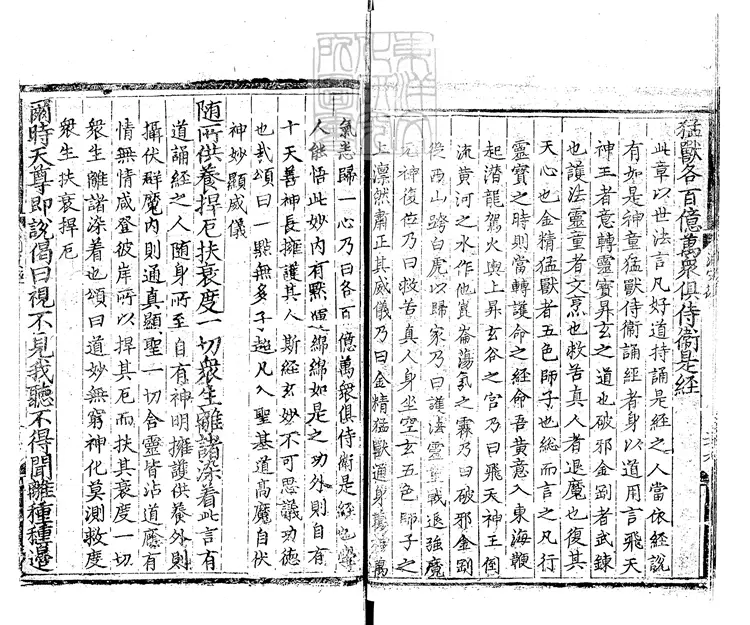 猛獸各百億萬衆俱侍衞是經
此章以世法言凡好道持誦是經之人當依經說
有如是神童猛獸侍衞誦經者身以道用言飛天
神王者意轉靈寶昇玄之道也破邪金剛者武鍊
也護法靈童者文烹也救苦真人者退魔也復其
天心也金精猛獸者五色師子也總而言之凡行
靈寶之時則當轉護命之經命吾黃意入東海鞭
起潛龍駕火輿上昇玄谷之宮乃曰飛天神王倒
流黃河之水作他崑崙蕩氣之霖乃曰破邪金剛
從西山跨白虎以歸家乃曰護法靈童戰退強魔
元神復位乃曰救苦真人身坐空玄五色師子之
上凛然肅正其威儀乃曰金精猛獸通身萬
氣悉歸一心乃曰各百億萬衆俱侍衛是經也
人能悟此妙內有默運綿綿如是之功外則自有
十天善神長擁護其人斯經玄妙不可思議功德
也哉頌曰一點無多子超凡入聖基道高魔自伏
神妙顯威儀
随所供養捍厄扶衰度一切衆生離諸染着此言有
道誦經之人随身所至自有神明擁護供養外則
攝伏群魔內則通真顯聖一切含靈皆沾道應有
情無情咸登彼岸所以捍其厄而扶其衰度一切
衆生離諸染着也頌曰道妙無窮神化莫測救度
衆生扶衰捍厄
爾時天尊即說偈曰視不見我聽不得聞離種種邊